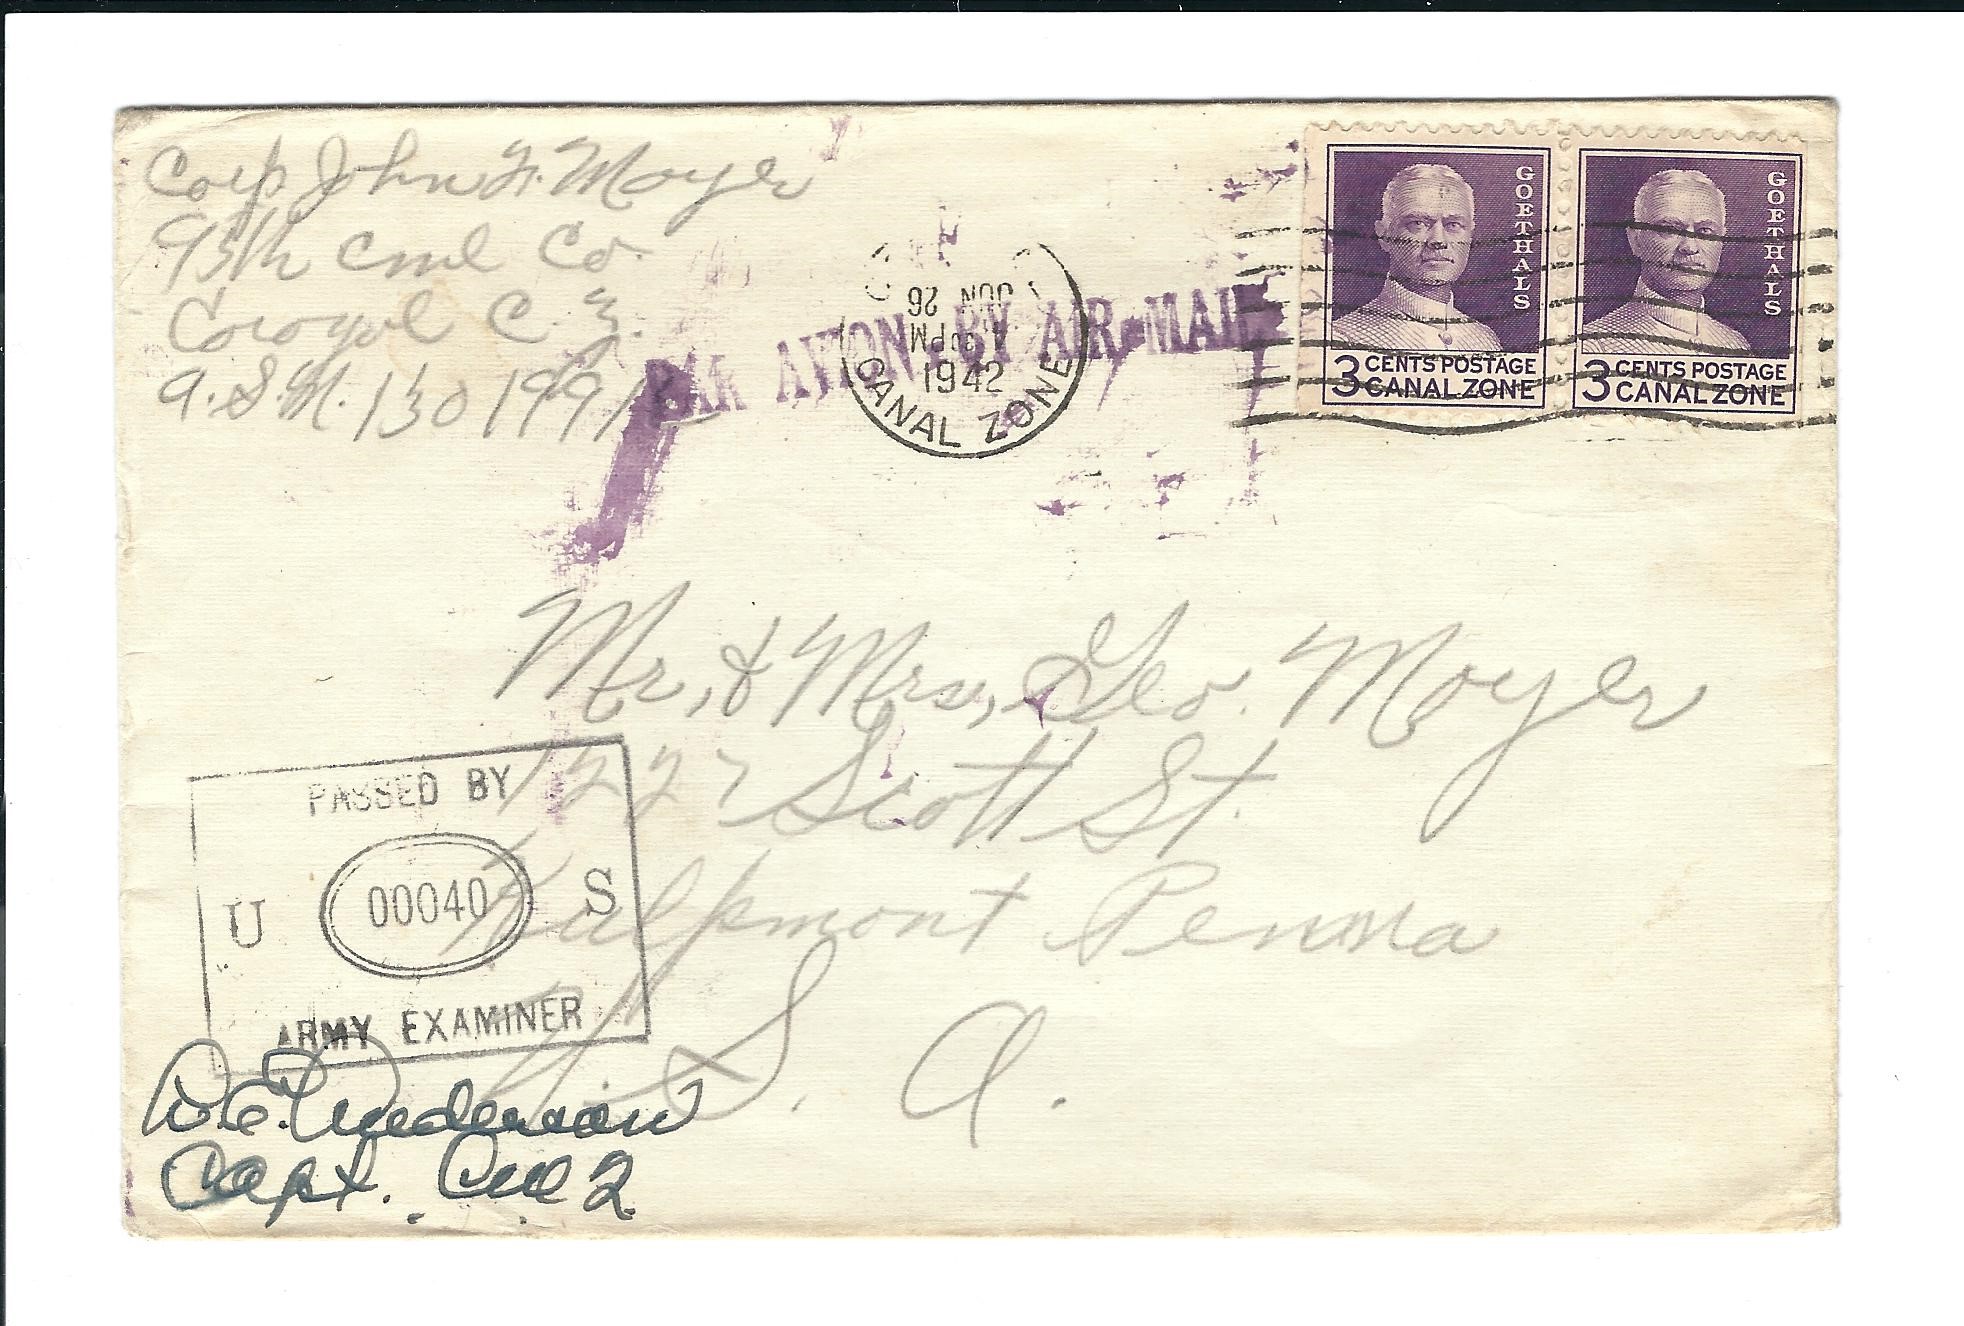 Corp John F. Moyer
95th Cml Co.
Corozal C. Z.
A.S.N. 130
PAR AVION BY AIR MAIL
JUN 26
PM
1942
CANAL ZONE
GOETHALS
3 CENTS POSTAGE
CANAL ZONE
GOETHALS
3 CENTS POSTAGE
CANAL ZONE
Mr, & Mrs, Geo. Moyer
1227 Scott St.
Kulpmont Penna
U. S. A.
PASSED BY
U 00040 S
ARMY EXAMINER
Capt.